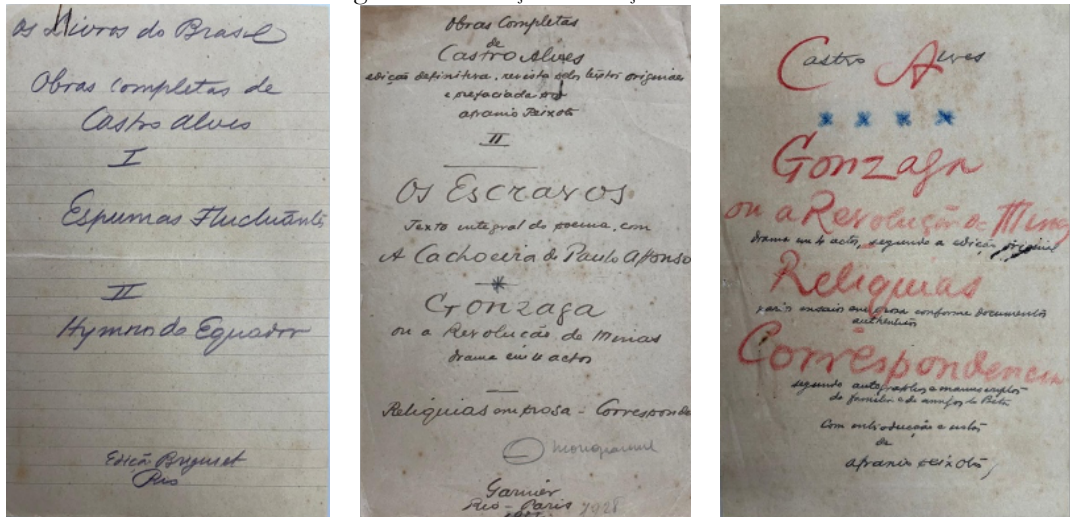 Os Livros do Brasil
Obras completas de
Castro Alves
I
Espumas Fluctuantes
II
Hymno do Equador
Edição Briguiet
Rio
Obras Completas
de
Castro Alves
edição definitiva, revista pelos textos originaes
e prefaciada por
Afranio Peixoto
II
Os Escravos
Texto integral do poema, com
A Cachoeira de Paulo Affonso
*
Gonzaga
ou a Revolução de Minas
drama em 4 actos
Reliquias em prosa - Correspond
monogramme
Garnier
Rio - Paris 1921
Castro Alves
Gonzaga
ou a Revolução de Minas
drama em 4 actos, segundo a edição original
Reliquias
ensaios em prosa conforme documentos
authenticos
Correspondencia
segundo autographos e manuscriptos
de familia e de amigos do Poeta
Com introducção e notas
de
Afranio Peixoto